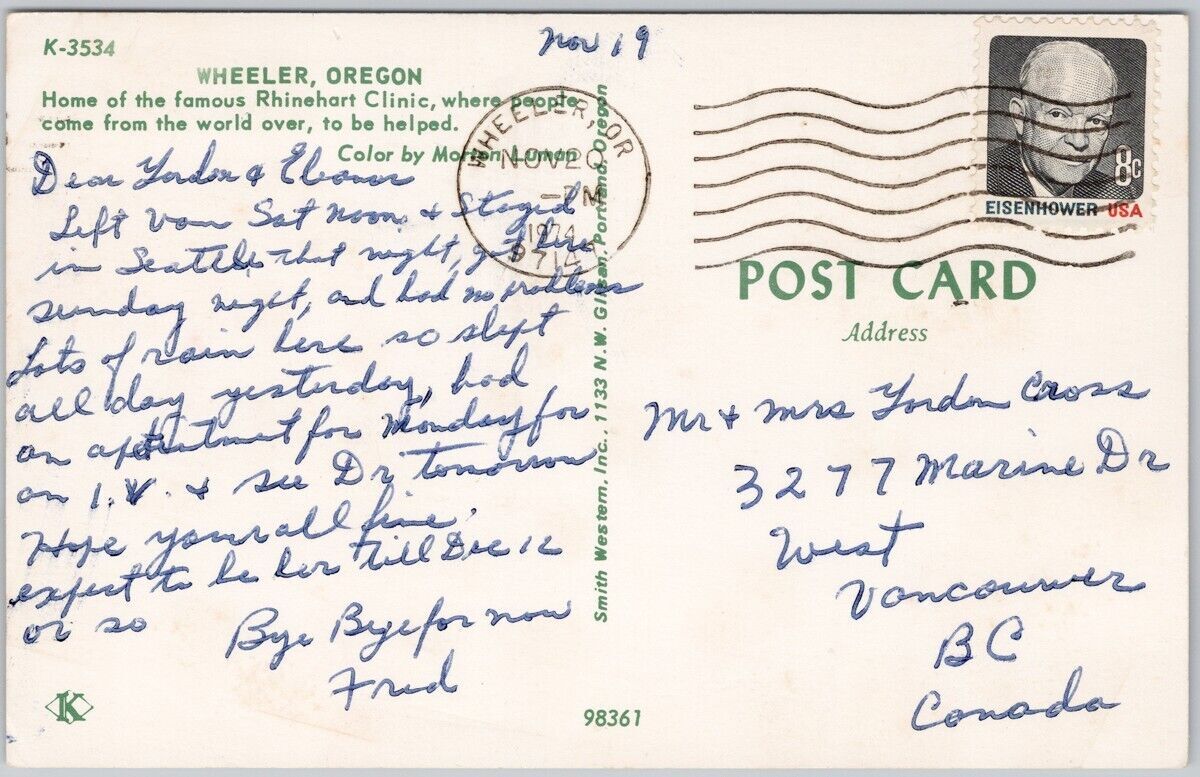 K-3534
Nov 19
WHEELER, OREGON
Home of the famous Rhinehart Clinic, where people
come from the world over, to be helped.
Color by Morton Luman
Dear Yordon & Eleanor
Left Van Sat Noon & Stayed
in Seattle that night, got here
sunday night, and had no problems
Lots of rain here so slept
all day yesterday, had
an apointment for Monday for
an I.V. & see Dr tomorrow
Hope your all fine.
expect to be her till Dec 12
or so
Bye Bye for now
Fred
K
98361
Smith Western, Inc., 1133 N.W. Glisan, Portland, Oregon
WHEELER, OR
NOV 20
PM
1974
EISENHOWER USA
8c
POST CARD
Address
Mr & Mrs Yordon Cross
3277 Marine Dr
West
Vancouver
BC
Canada